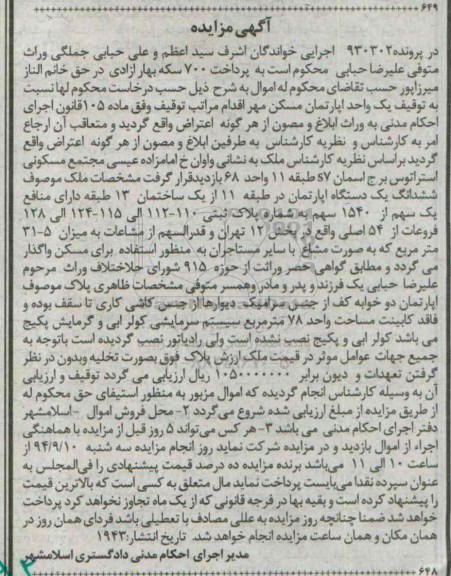 ۶۴۹
آگهی مزایده
در پرونده ۹۳۰۳۰۲ اجرایی خواندگان اشرف سید اعظم و علی حبابی جملگی وراث
متوفی علیرضا حبابی محکوم است به پرداخت ۷۰۰ سکه بهار ازادی در حق خانم الناز
میرزاپور حسب تقاضای محکوم له اموال به شرح ذیل حسب درخاست محکوم لها نسبت
به توقیف یک واحد اپارتمان مسکن مهر اقدام مراتب توقیف وفق ماده ۱۰۵ قانون اجرای
احکام مدنی به وراث ابلاغ و مصون از هر گونه اعتراض واقع گردید و متعاقب آن ارجاع
امر به کارشناس و نظریه کارشناس به طرفین ابلاغ و مصون از هر گونه اعتراض واقع
گردید براساس نظریه کارشناس ملک به نشانی واوان خ امامزاده عیسی مجتمع مسکونی
استراتوس برج اسمان ۵۷ طبقه ۱۱ واحد ۶۸ بازدیدقرار گرفت مشخصات ملک موصوف
ششدانگ یک دستگاه اپارتمان در طبقه ۱۱ از یک ساختمان ۱۳ طبقه دارای منافع
یک سهم از ۱۵۴۰ سهم به شماره پلاک ثبتی ۱۱۰-۱۱۲ الی ۱۱۵-۱۲۴ الی ۱۲۸
فروعات از ۵۴ اصلی واقع در بخش ۱۲ تهران و قدرالسهم از مشاعات به میزان ۵-۳۱
متر مربع که به صورت مشاع با سایر مستاجران به منظور استفاده برای مسکن واگذار
می گردد و مطابق گواهی حصر وراثت از حوزه ۹۱۵ شورای حل اختلاف وراث مرحوم
علیرضا حبابی یک فرزندو پدر و مادر وهمسر متوفی مشخصات ظاهری پلاک موصوف
اپارتمان دو خوابه کف از جنس سرامیک دیوارها از جنس کاشی کاری تا سقف بوده و
فاقد کابینت مساحت واحد ۷۸ مترمربع سیستم سرمایشی کولر ابی و گرمایش پکیج
می باشد کولر ابی و پکیج نصب نشده است ولی رادیاتور نصب گردیده است باتوجه به
جمیع جهات عوامل موثر در قیمت ملک ارزش پلاک فوق بصورت تخلیه وبدون در نظر
گرفتن تعهدات و دیون برابر ۱۰۵۰۰۰۰۰۰۰ ریال ارزیابی می گردد توقیف و ارزیابی
آن به وسیله کارشناس انجام گردیده که اموال مزبور به منظور استیفای حق محکوم له
از طریق مزایده از مبلغ ارزیابی شده شروع می‌گردد ۲- محل فروش اموال -اسلامشهر
دفتر اجرای احکام مدنی می باشد ۳-هر کس می‌تواند ۵ روز قبل از مزایده با هماهنگی
اجراء از اموال بازدید و در مزایده شرکت نماید روز انجام مزایده سه شنبه ۹۴/۹/۱۰ از
ساعت ۱۰ الی ۱۱ می‌باشد برنده مزایده ده درصد قیمت پیشنهادی را فی‌المجلس به
عنوان سپرده نقدا می‌بایست پرداخت نماید مال متعلق به کسی است که بالاترین قیمت
را پیشنهاد کرده است و بقیه بها در فرجه قانونی که از یک ماه تجاوز نخواهد کرد پرداخت
خواهد شد ضمنا چنانچه روز مزایده به عللی مصادف با تعطیلی باشد فردای همان روز در
همان مکان و همان ساعت مزایده انجام خواهد شد. تاریخ انتشار:۱۹۴۳
مدیر اجرای احکام مدنی دادگستری اسلامشهر
۶۴۸